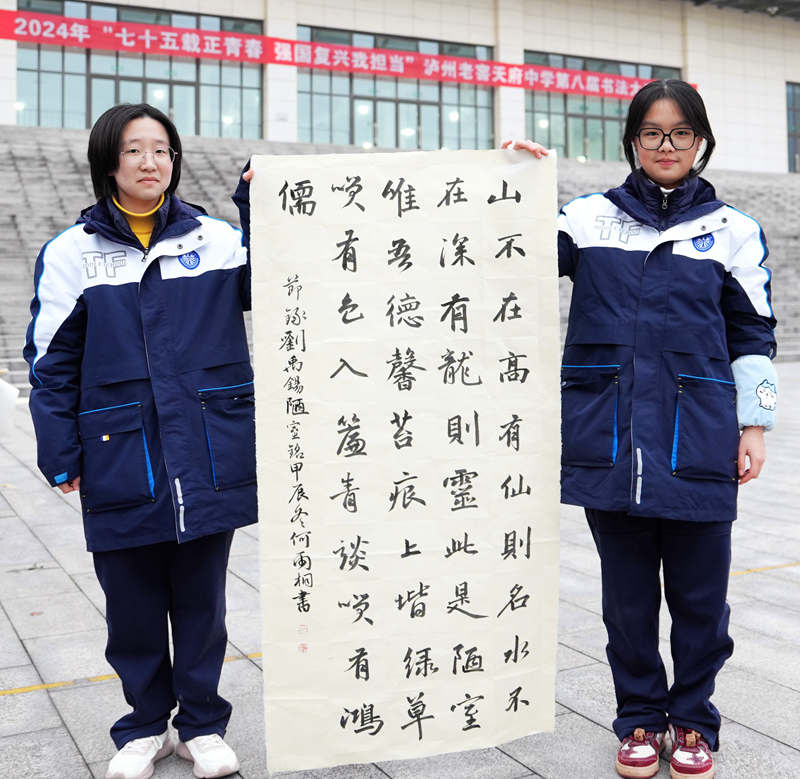 2024年 “七十五载正青春 强国复兴我担当” 泸州老窖天府中学第八届书法大
山不在高有仙則名水不
在深有龍則靈此是陋室
唯吾德馨苔痕上堦緑草
咲有色入簾青談咲有鴻
儒
節録劉禹錫陋室銘甲辰冬何雨桐書
TF
TF